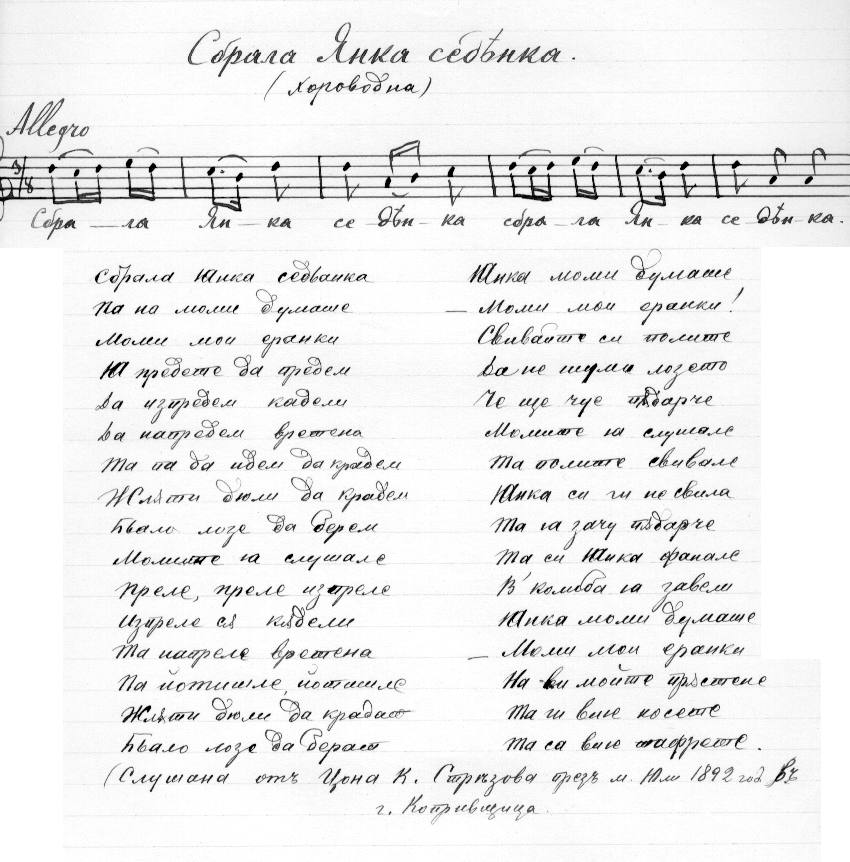 Сбрала Янка седѣнка.
(Хороводна)
Allegro
3/8
Сбра—ла Ян—ка се—дѣн—ка сбра—ла Ян—ка се дѣн—ка.
Сбрала Юнка седванка
Па на моми думаше
Моми мои еранки
Ю предете да предем
Да изпредем кадели
Да напредем вретена
Та па да идем да крадем
Жлъти дюли да крадем
Бьало лозе да берем
Момите ю слушале
Преле, преле изпреле
Изпреле съ къдели
Та напреле вретена
Па йотишле, йотишле
Жлъти дюли да крадат
Бьало лозе да берат
Юнка моми думаше
— Моми мои еранки!
Свивайте си полите
Да не шума лозето
Че ще чуе пъдарче
Момите ю слушале
Та полите свивале
Юнка си ги не свила
Та ю зачу пъдарче
Та си Юнка фанале
В' колиба ю завели
Юнка моми думаше
— Моми мои еранки
На ви мойте пръстене
Та ги вию носете
Та са вию
(Слушана отъ Цона К. Стръзова презъ м. Юли 1892 год въ
г. Копривщица.